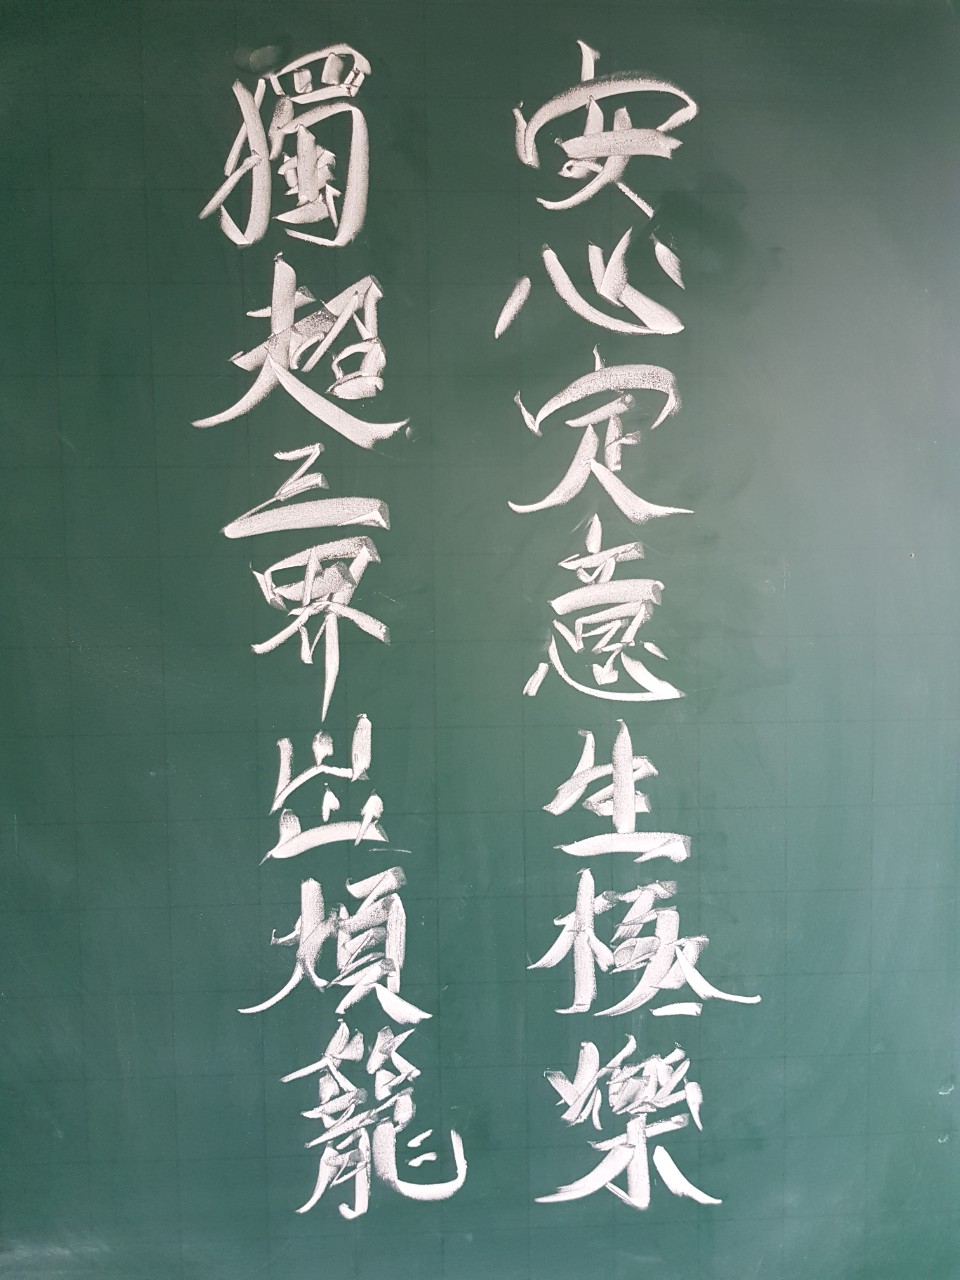 安心定意生極樂
獨超三界出煩籠